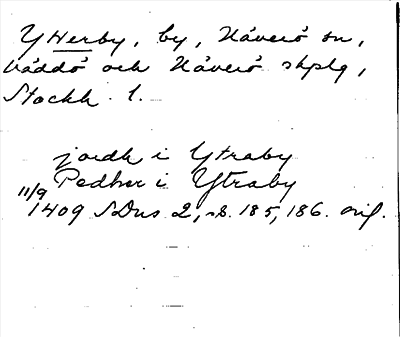 Ytterby, by, Häverö sn,
Väddö och Häverö skplg,
Stockh. l.
jordh i Ytraby
Pedher i Ytraby
11/9
1409 SDns 2, s. 185, 186. orig.